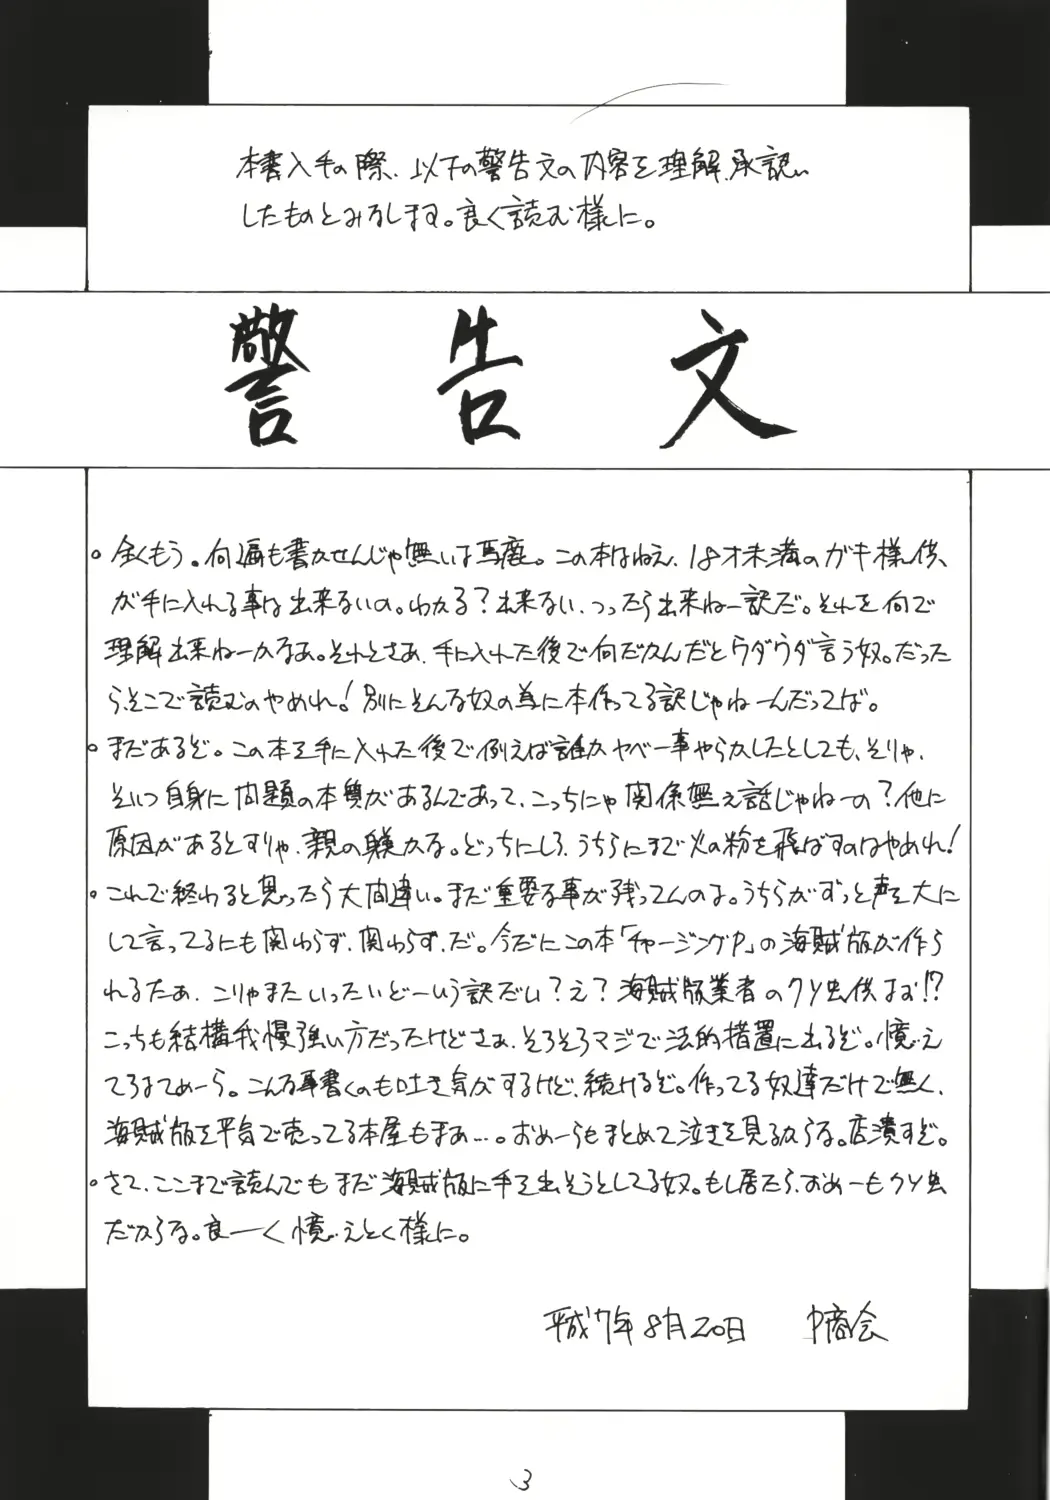 本書入手の際、以下の警告文の内容を理解、承認、
したものとみなします。良く読む様に。
警告文
。全くもう。何遍も書かせんじゃ無いよ馬鹿。この本はねえ、18才未満のガキ様供、
が手に入れる事は出来ないの。わかる？出来ない、つったら出来ねー訳だ。それを何で
理解出来ねーかなあ。それとさあ、手に入れた後で何だかんだとウダウダ言う奴。だった
らそこで読むのやめれ！別にそんな奴の為に本作ってる訳じゃねーんだってば。
。まだあるぞ。この本を手に入れた後で例えば誰かヤベー事やらかしたとしても、そりゃ、
そいつ自身に問題の本質があるんであって、こっちにゃ関係無え話じゃねーの？他に
原因があるとすりゃ、親の躾かな。どっちにしろ、うちらにまで火の粉を飛ばすのはやめれ！
。これで終わると思ったら大間違い。まだ重要な事が残ってんのよ。うちらがずっと声を大に
して言ってるにも関わらず、関わらず、だ。今だにこの本「チャージングP」の海賊版が作ら
れるたあ、こりゃまたいったいどーいう訳だい？え？海賊版業者のクソ虫供よお!?
こっちも結構我慢強い方だったけどさあ、そろそろマジで法的措置に出るぞ。憶え
てろよてめーら。こんな事書くのも吐き気がするけど、続けるぞ。作ってる奴達だけで無く、
海賊版を平気で売ってる本屋もまあ…。おめーらもまとめて泣きを見るからな。店潰すぞ。
。さて、ここまで読んでもまだ海賊版に手を出そうとしてる奴。もし居たら、おめーもクソ虫
だからな。良ーく憶えとく様に。
平成7年8月20日 P商会
3